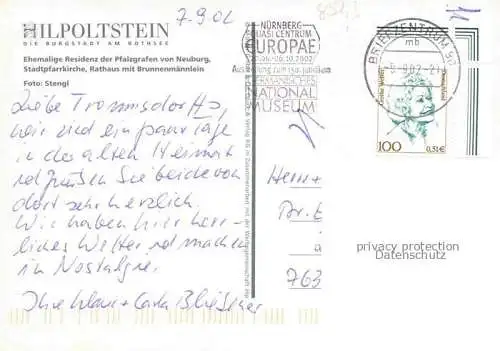 HILPOLTSTEIN
DIE BURGSTADT AM ROTHSEE
Ehemalige Residenz der Pfalzgrafen von Neuburg,
Stadtpfarrkirche, Rathaus mit Brunnenmännlein
Foto: Stengl
7.9.02
NÜRNBERG
QUASI CENTRUM
EUROPAE
06.10.2002
GERMANISCHES
NATIONAL
MUSEUM
BRIEFZENTRUM 90
mb
9.02-21
100
0,51€
Liebe
wir sind ein paar Tage
in der alten Heimat
und grüßen Sie beide von
dort sehr herzlich.
Wir haben hier herr-
liches Wetter und machen
in Nostalgie.
Ihre Klaus + Carla
Herrn +
Dr.
763
privacy protection
Datenschutz